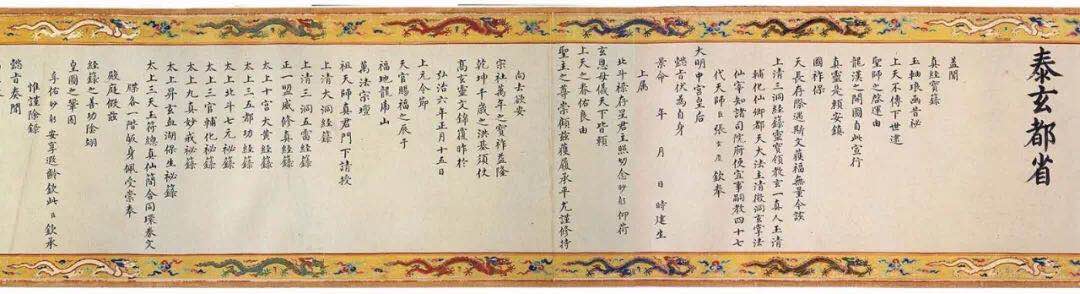 泰玄都省
蓋聞
真經寶籙
玉軸琅函昔祕
上天不傳下世遂
聖師之啓運由
龍漢之開圖自此宣行
真靈是賴安鎮
國祚保
天長存際遇斯文獲福無量今該
上清三洞經籙靈寶領教玄一真人玉清
輔化仙卿都天大法主清微洞玄掌法
仙宰知諸司院府便宜事嗣教四十七
代天師臣張玄慶欽奉
大明中宮皇后
懿旨伏為自身
景命 年 月 日時建生
上屬
北斗 標存星君主照切念妙躬仰荷
玄恩母儀天下皆賴
上天之眷佑良由
聖主之尊崇願茲履承平尤謹修持
向士欽安
宗社萬年之寶祚益隆
乾坤千歲之洪基須伏
高玄靈文錦覆昨於
弘治六年正月十五日
上元令節
天官賜福之辰于
福地龍虎山
萬法宗壇
祖天師真君門下請授
上清大洞經籙
上清三洞五雷經籙
正一盟威修真經籙
太上十宮大黃經籙
太上三五都功經籙
太上北斗七元祕籙
太上三官輔化祕籙
太上九真妙戒祕籙
太上昇玄血湖保生祕籙
太上三天玉符總真仙簡合同環券文
牒各一階 身佩受崇奉
殿庭假茲
經籙之善功陰翊
皇圖之鞏固
尊佑妙躬安享遐齡欽此臣欽承
惟謹除錄
懿旨奏聞